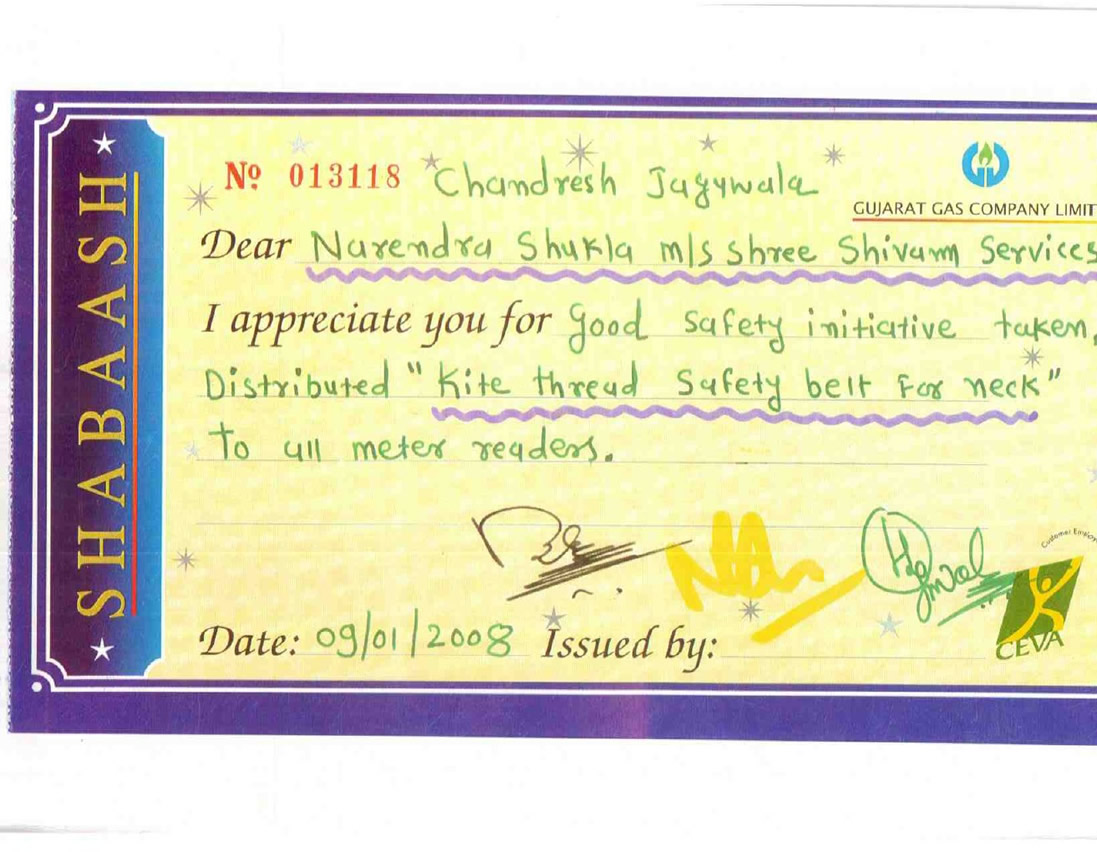 SHABAASH
Nº 013118 Chandresh Jagywala
GUJARAT GAS COMPANY LIMIT
Dear Narendra Shukla m/s shree Shivam Services
I appreciate you for good safety initiative taken.
Distributed "Kite thread Safety belt For neck"
To all meter readers.
Customer Employ
Date: 09/01/2008 Issued by:
CEVA